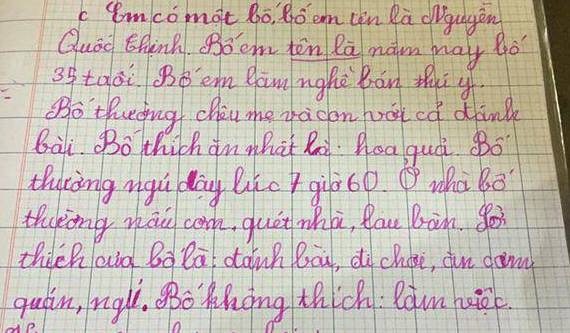 c Em có một bố, bố em tên là Nguyễn
Quốc Thịnh. Bố em tên là năm nay bố
35 tuổi. Bố em làm nghề bán thú y.
Bố thường chêu mẹ và con với cả đánh
bài. Bố thích ăn nhất là: hoa quả. Bố
thường ngủ dậy lúc 7 giờ 60. Ở nhà bố
thường nấu cơm, quét nhà, lau bàn. Sở
thích của bố là: đánh bài, đi chơi, ăn cơm
quán, ngủ. Bố không thích: làm việc.